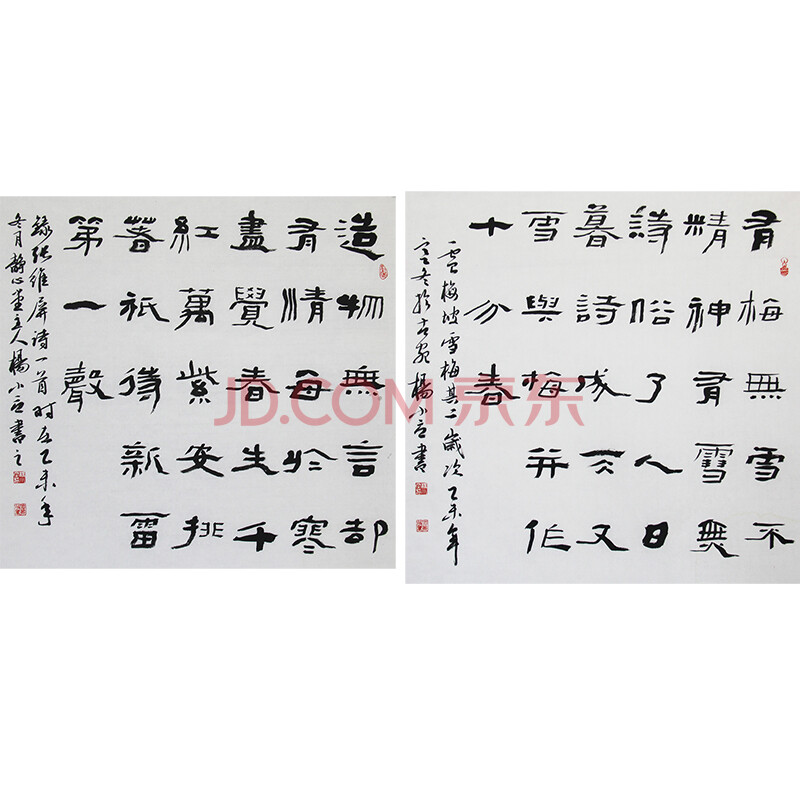 造物無言却
有情每於寒
盡覺春生千
紅萬紫安排
著祇待新雷
第一聲
錄張維屏詩一首时在乙未年
冬月静心堂主人楊小書之
有梅無雪不
精神有雪無
詩俗了人日
暮詩成天又
雪與梅并作
十分春
盧梅坡雪梅其二歲次乙未年
冬於古楊小書
JD.COM 京东